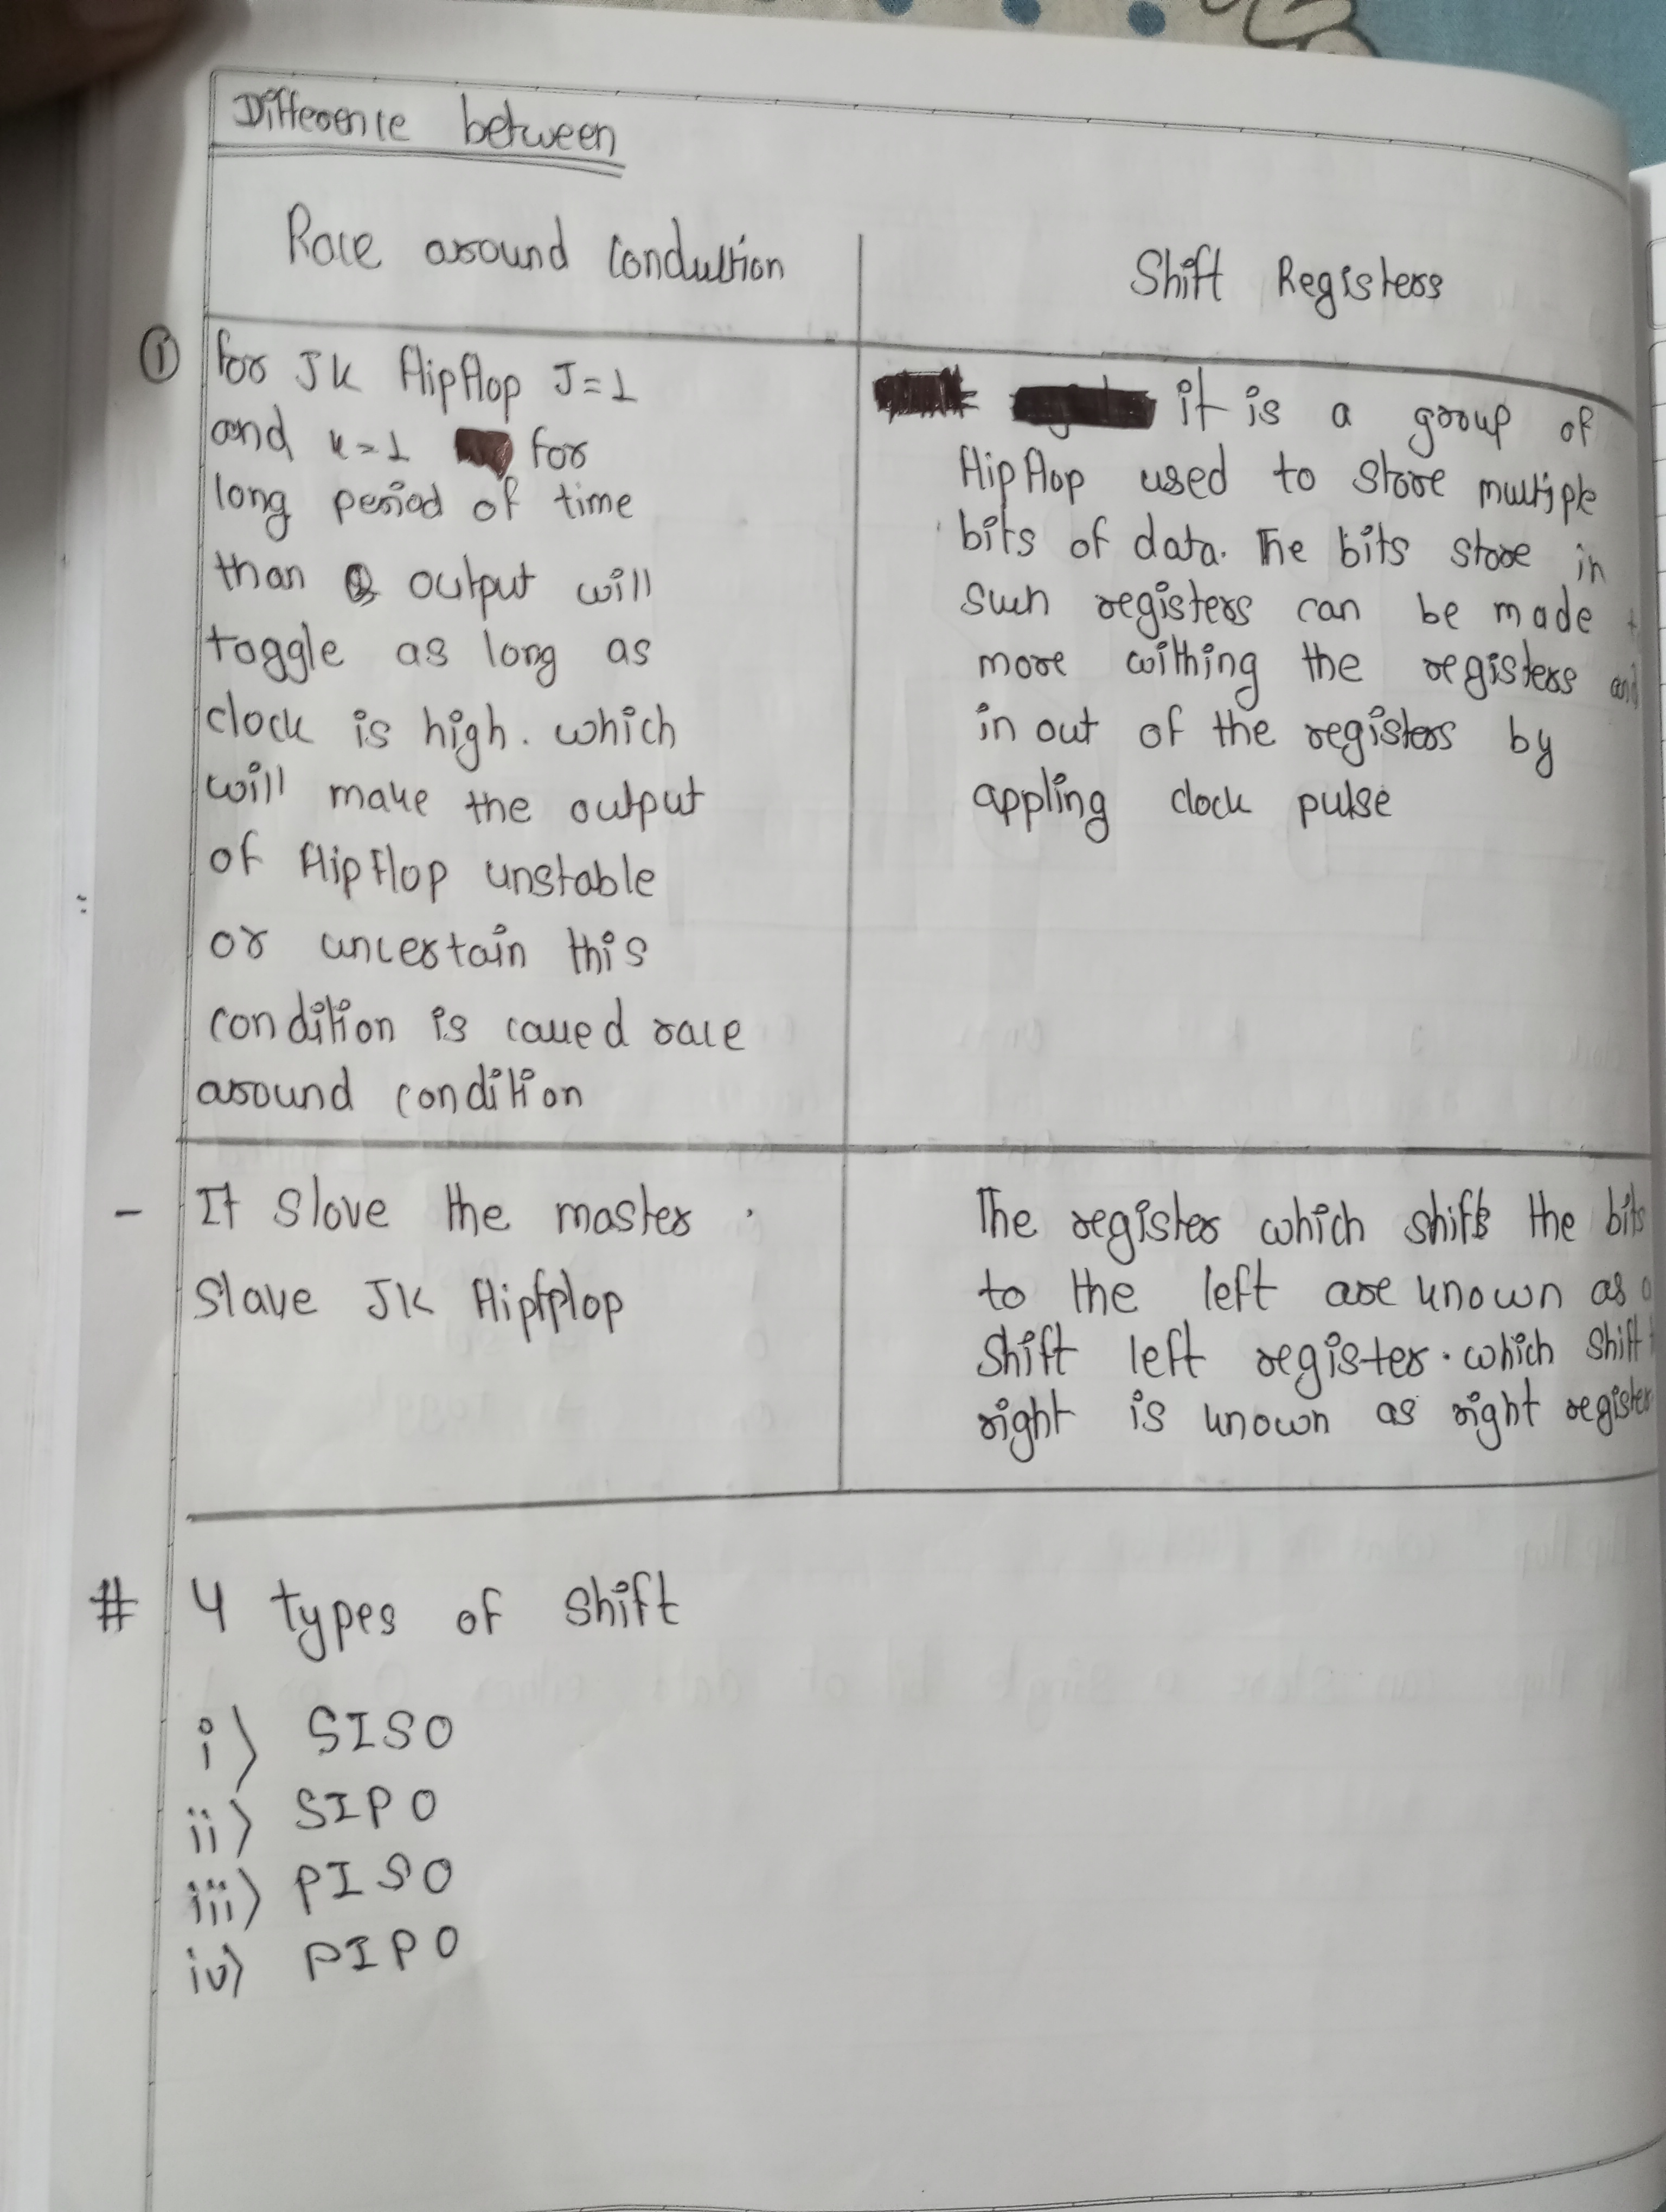 Difference between
Race around Conduction
Shift Registers
① for JK flipflop J=1
and k=1 for
long period of time
than Q output will
toggle as long as
clock is high. which
will make the output
of flipflop unstable
or uncertain this
condition is called race
around condition
it is a group of
flipflop used to store multiple
bits of data. The bits store in
such registers can be made
more withing the registers and
in out of the registers by
appling clock pulse
- It Slove the master
Slave JK flipfplop
The register which shifts the bits
to the left are known as
Shift left register. which shift
right is known as right register
# 4 types of shift
i) SISO
ii) SIPO
iii) PISO
iv) PIPO